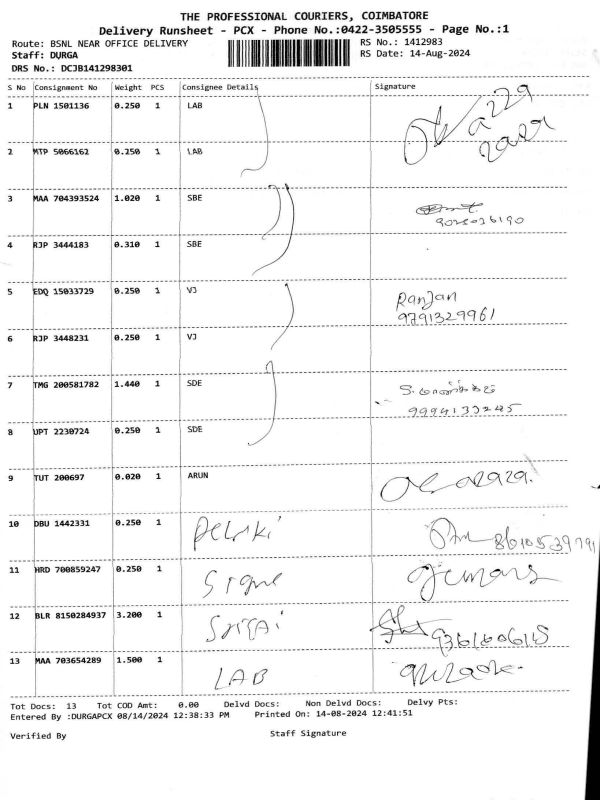 THE PROFESSIONAL COURIERS, COIMBATORE
Delivery Runsheet - PCX - Phone No.:0422-3505555 - Page No.:1
Route: BSNL NEAR OFFICE DELIVERY RS No.: 1412983
Staff: DURGA RS Date: 14-Aug-2024
DRS No.: DCJB141298301
S No Consignment No Weight PCS Consignee Details Signature
1 PLN 1501136 0.250 1 LAB
2 MTP 5066162 0.250 1 LAB
3 MAA 704393524 1.020 1 SBE
4 RJP 3444183 0.310 1 SBE
5 EDQ 15033729 0.250 1 VJ Ranjan
9791329961
6 RJP 3448231 0.250 1 VJ
7 TMG 200581782 1.440 1 SDE
8 UPT 2230724 0.250 1 SDE
9 TUT 200697 0.020 1 ARUN
10 DBU 1442331 0.250 1
11 HRD 700859247 0.250 1
12 BLR 8150284937 3.200 1
13 MAA 703654289 1.500 1 LAB
Tot Docs: 13 Tot COD Amt: 0.00 Delvd Docs: Non Delvd Docs: Delvy Pts:
Entered By :DURGAPCX 08/14/2024 12:38:33 PM Printed On: 14-08-2024 12:41:51
Verified By Staff Signature